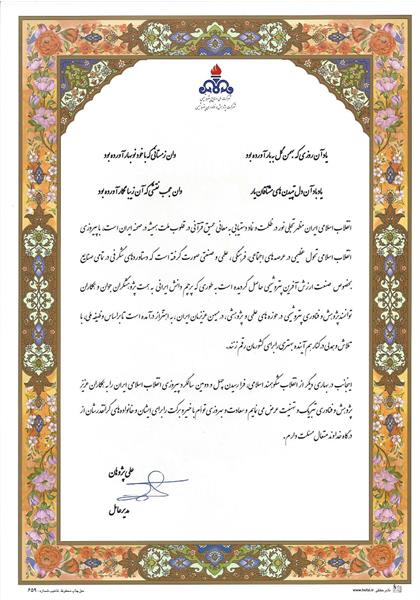 شرکت ملی صنایع پتروشیمی
شرکت پژوهش و فناوری پتروشیمی
یاد آن روزی که بهمن گل به بار آورده بود
وان زمستانی که با خود نوبهار آورده بود
یاد باد آن دل تپیدن‌های مشتاقان یار
وان عجب نقشی که آن زیبا نگار آورده بود
انقلاب اسلامی ایران مظهر تجلی نور در ظلمت و نماد دستیابی به معانی عمیق قرآنی در قلوب ملت همیشه در صحنه ایران است، با پیروزی
انقلاب اسلامی تحول عظیمی در عرصه‌های اجتماعی، فرهنگی، علمی و صنعتی صورت گرفته است که دستاوردهای شگرفی در تمامی صنایع
بخصوص صنعت ارزش آفرین پتروشیمی حاصل گردیده است به طوری که پرچم دانش ایرانی به همت پژوهشگران جوان و همکاران
توانمند پژوهش و فناوری پتروشیمی در حوزه های علمی و پژوهشی، در میهن عزیزمان ایران، به اهتزاز درآمده است تا براساس وظیفه ملی، با
تلاش و همدلی در کنار هم آینده بهتری را برای کشورمان رقم زنند.
اینجانب در بهاری دیگر از انقلاب شکوهمند اسلامی، فرا رسیدن چهل و دومین سالگرد پیروزی انقلاب اسلامی ایران را به همکاران عزیز
پژوهش و فناوری تبریک و تهنیت عرض می نمایم و سعادت و بهروزی توأم با خیر و برکت را برای ایشان و خانواده‌های گرانقدرشان از
درگاه خداوند متعال مسئلت دارم.
علی پژوهان
مدیرعامل
حق چاپ محفوظ. شماره: ۶۵۹
www.hofal.ir